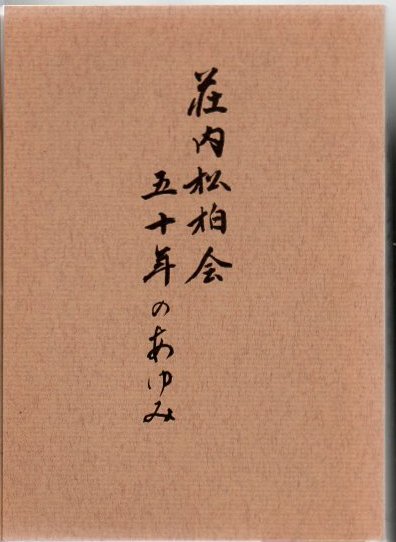 荘内松柏会
五十年のあゆみ